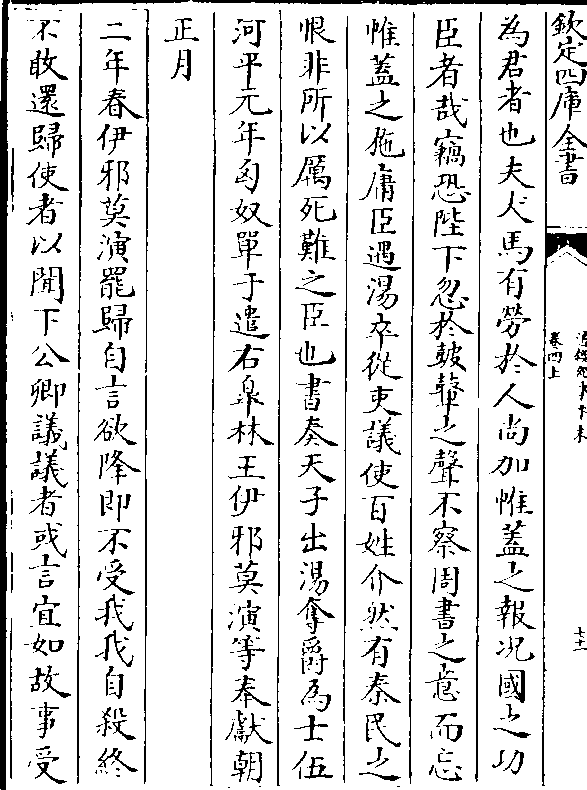 欽定四庫全書
卷四上
為君者也夫犬馬有勞於人尚加帷蓋之報况國之功
臣者哉竊恐陛下忽於鼓鼙之聲不察周書之意而忘
帷蓋之施庸臣遇湯卒從吏議使百姓介然有秦民之
恨非所以厲死難之臣也書奏天子出湯奪爵為士伍
河平元年匈奴單于遣右臯林王伊邪莫演等奉獻朝
正月
二年春伊邪莫演罷歸自言欲降即不受我我自殺終
不敢還歸使者以聞下公卿議議者或言宜如故事受